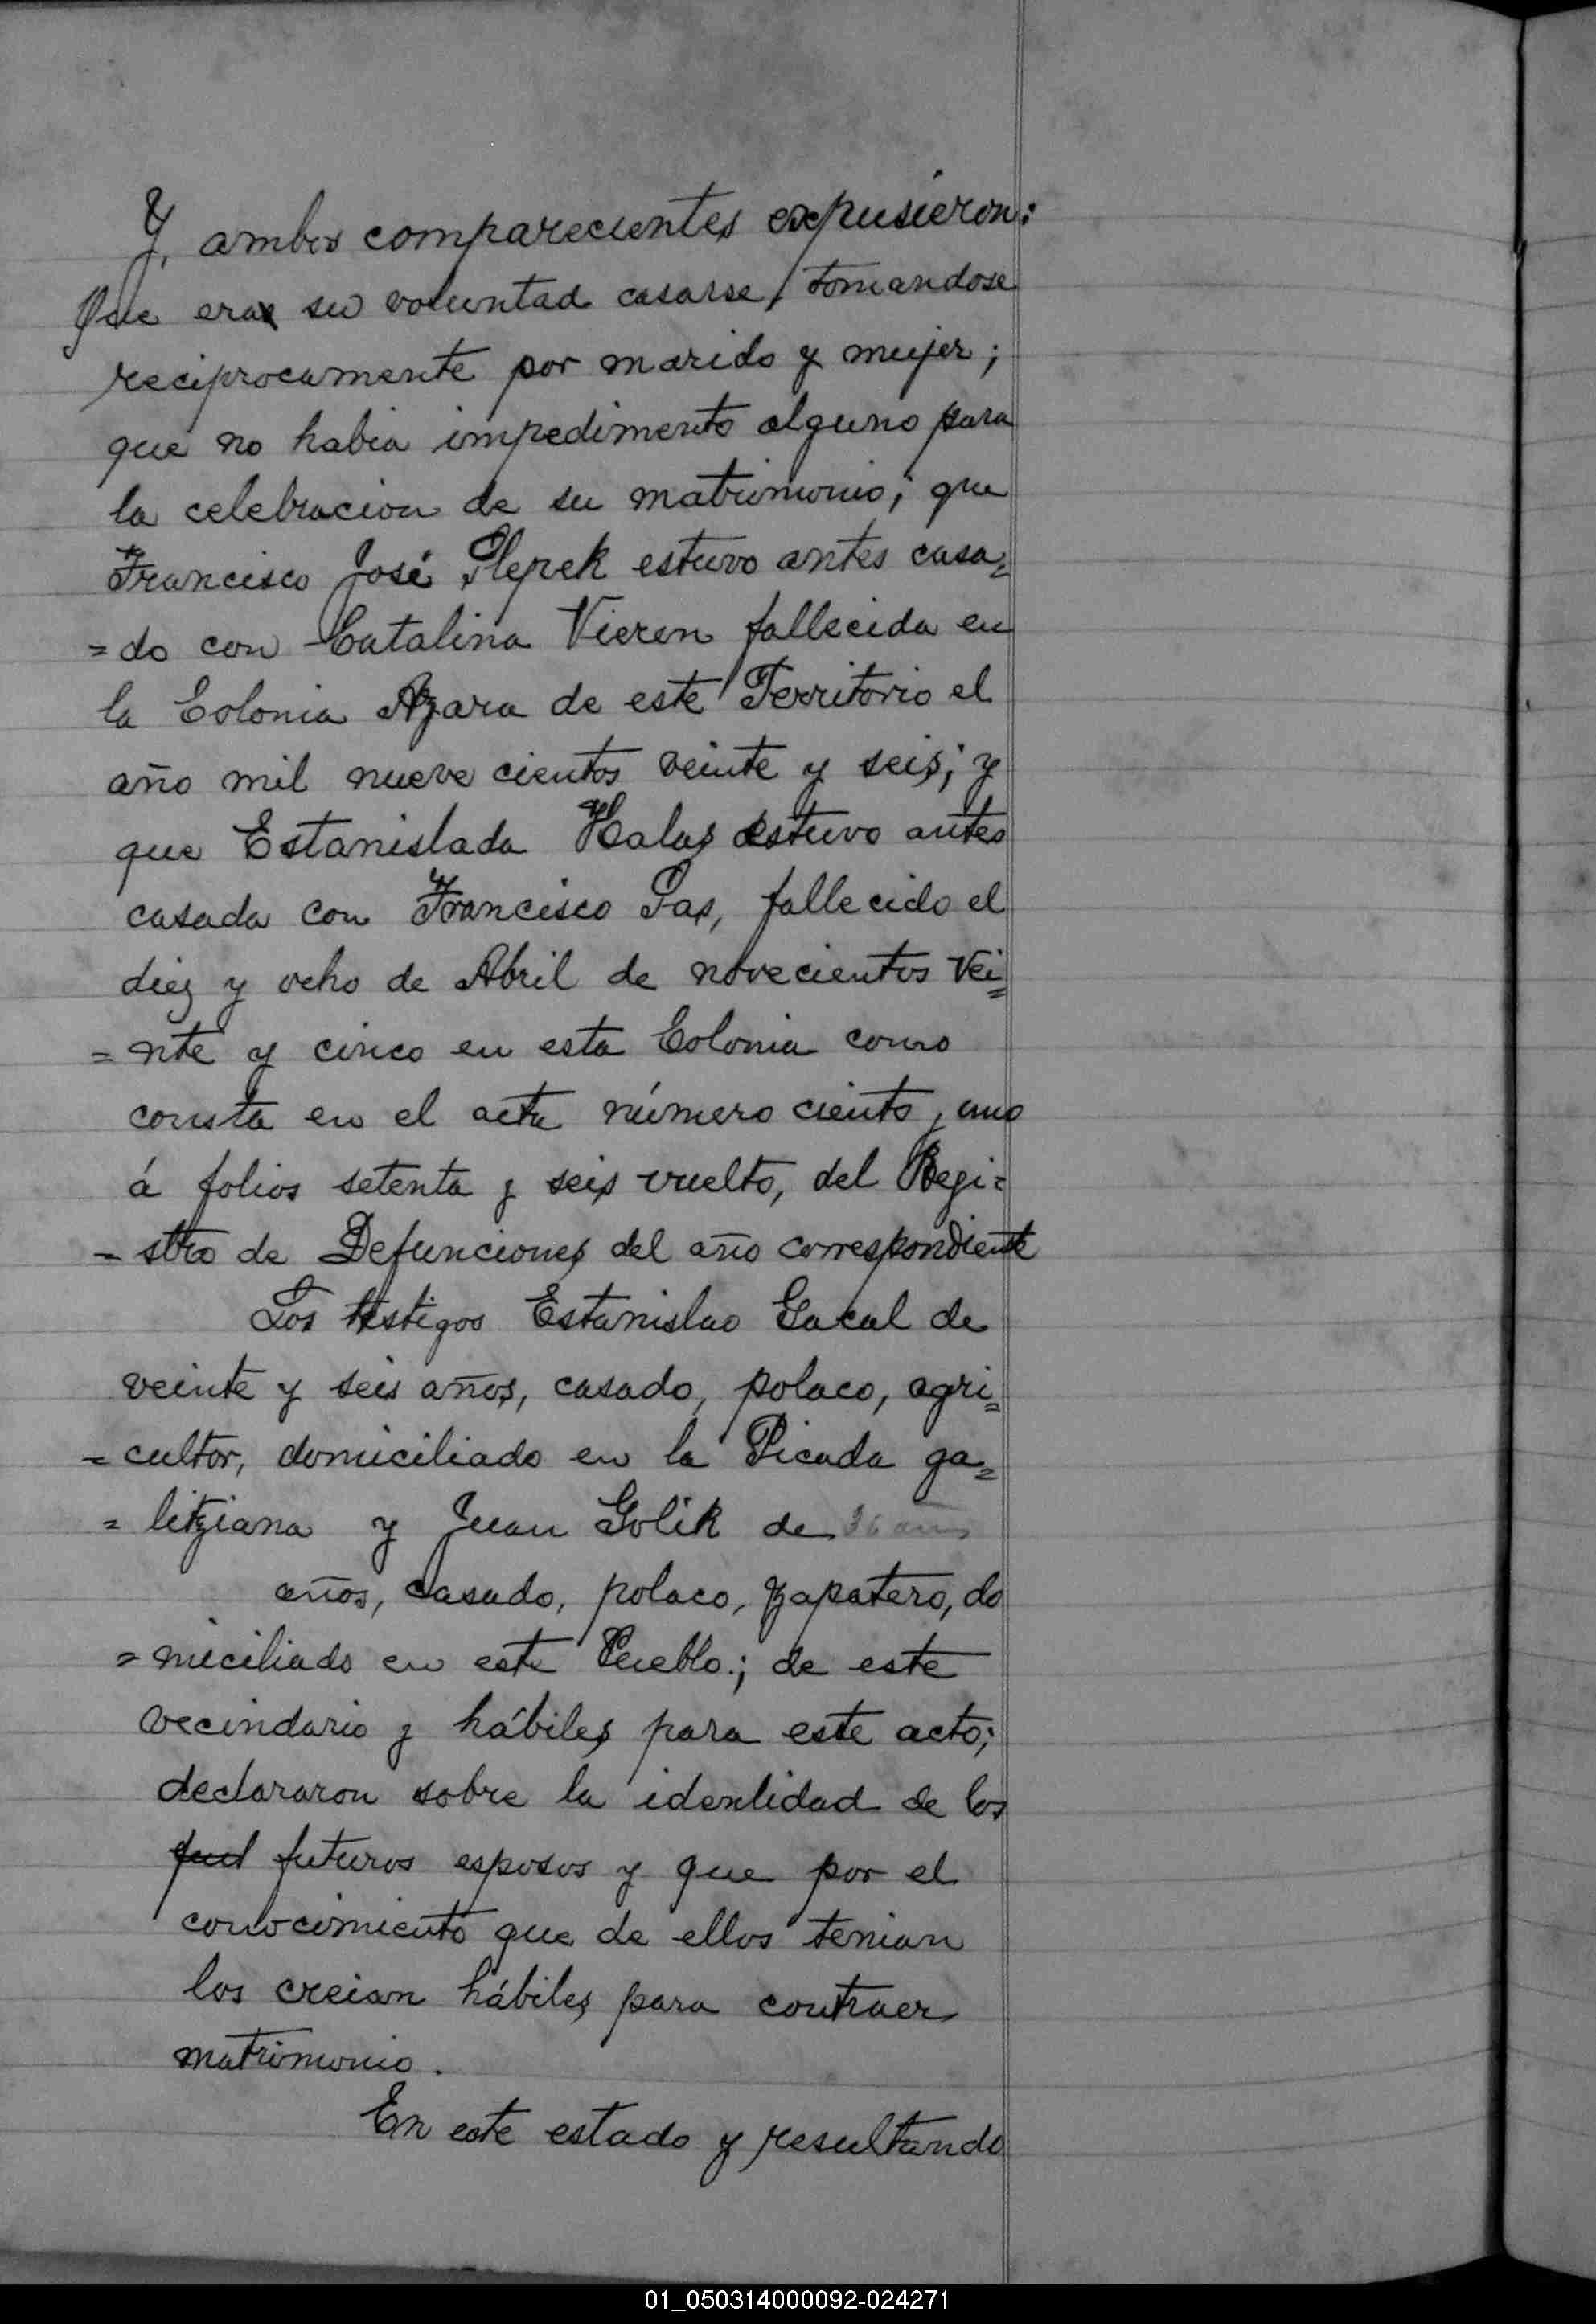 Y, ambos comparecientes expusieron:
Que era su voluntad casarse, tomandose
reciprocamente por marido y mujer;
que no habia impedimento alguno para
la celebracion de su matrimonio; que
Francisco José Plepek estuvo antes casa=
=do con Catalina Vieren fallecida en
la Colonia Azara de este Territorio el
año mil nueve cientos veinte y seis; y
que Estanislada Halas estuvo antes
casada con Francisco Pas, fallecido el
diez y ocho de Abril de novecientos vei=
=nte y cinco en esta Colonia como
consta en el acta número ciento y uno
á folios setenta y seis vuelto, del Regi=
=stro de Defunciones del año correspondiente
Los testigos Estanislao Gacal de
veinte y seis años, casado, polaco, agri=
=cultor, domiciliado en la Picada ga=
=litziana y Juan Golik de 36 años
años, casado, polaco, zapatero, do
=miciliado en este Pueblo.; de este
vecindario y hábiles para este acto;
declararon sobre la identidad de los
futuros esposos y que por el
conocimiento que de ellos tenian
los creian hábiles para contraer
matrimonio.
En este estado y resultando
01_050314000092-024271